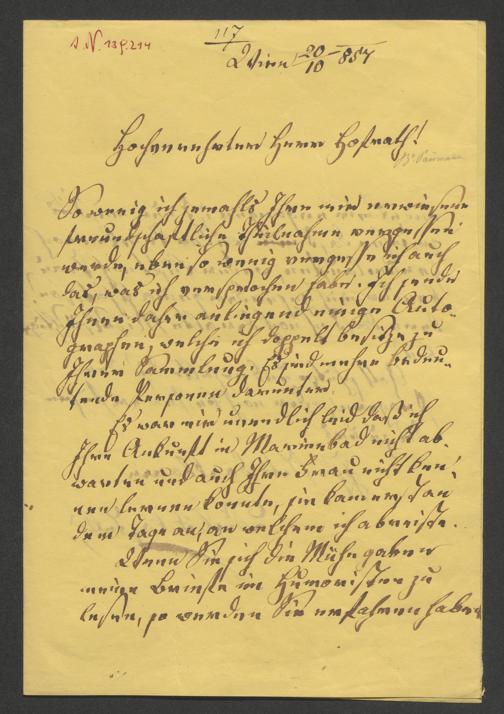 I.N. 139.214
117
Wien 20/10 857
Hochverehrter Herr Hofrath!
So wenig ich jemahls Ihre mir erwiesene
freundschaftliche Theilnahme vergessen
werde, eben so wenig vergesse ich auch
das, was ich versprochen habe. Ich sende
Ihnen daher anliegend einige Auto-
graphen, welche ich doppelt besitze zu
Ihrer Sammlung. Es sind mehre bedeu-
tende Personen darunter.
Es war mir unendlich leid daß ich
Ihre Ankunft in Marienbad nicht ab-
warten und auch Ihre Frau nicht ken-
nen lernen konnte, sie kam erst an
dem Tage an, an welchem ich abreiste.
Wenn Sie sich die Mühe gaben
meine Briefe im Humoristen zu
lesen, so werden Sie erfahren haben